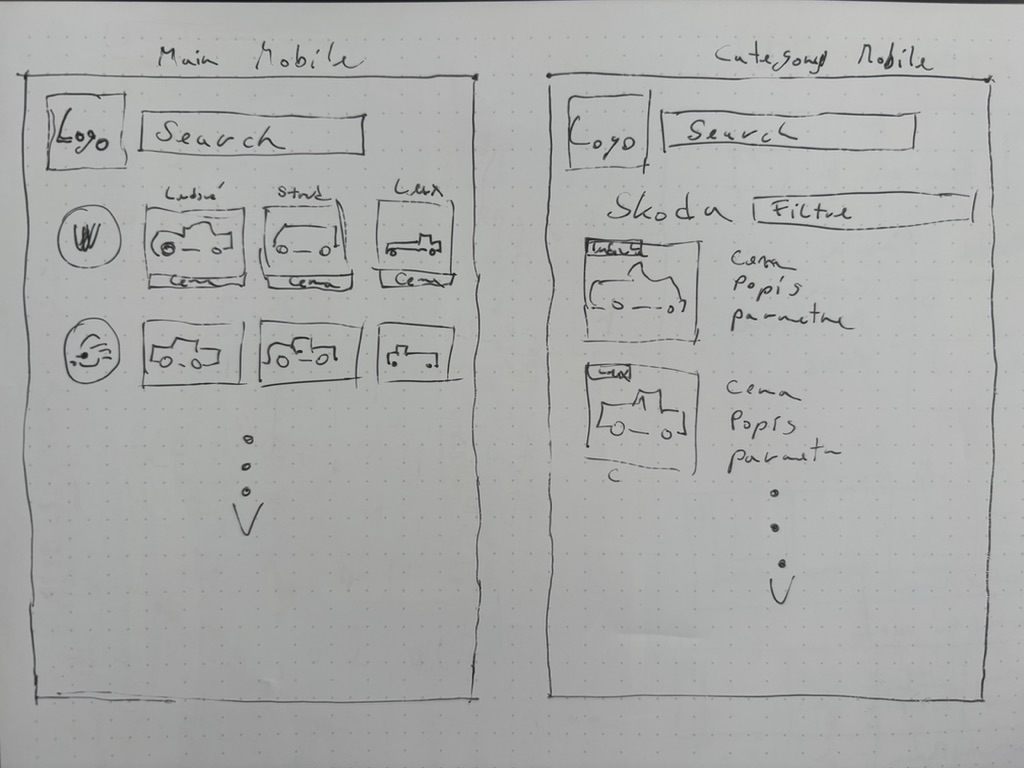 Main Mobile
Logo
Search
Lux
Cena
Cena
Cena
Category Mobile
Logo
Search
Skoda
Filtre
Cena
Popis
parametre
Cena
Popis
parametr
C